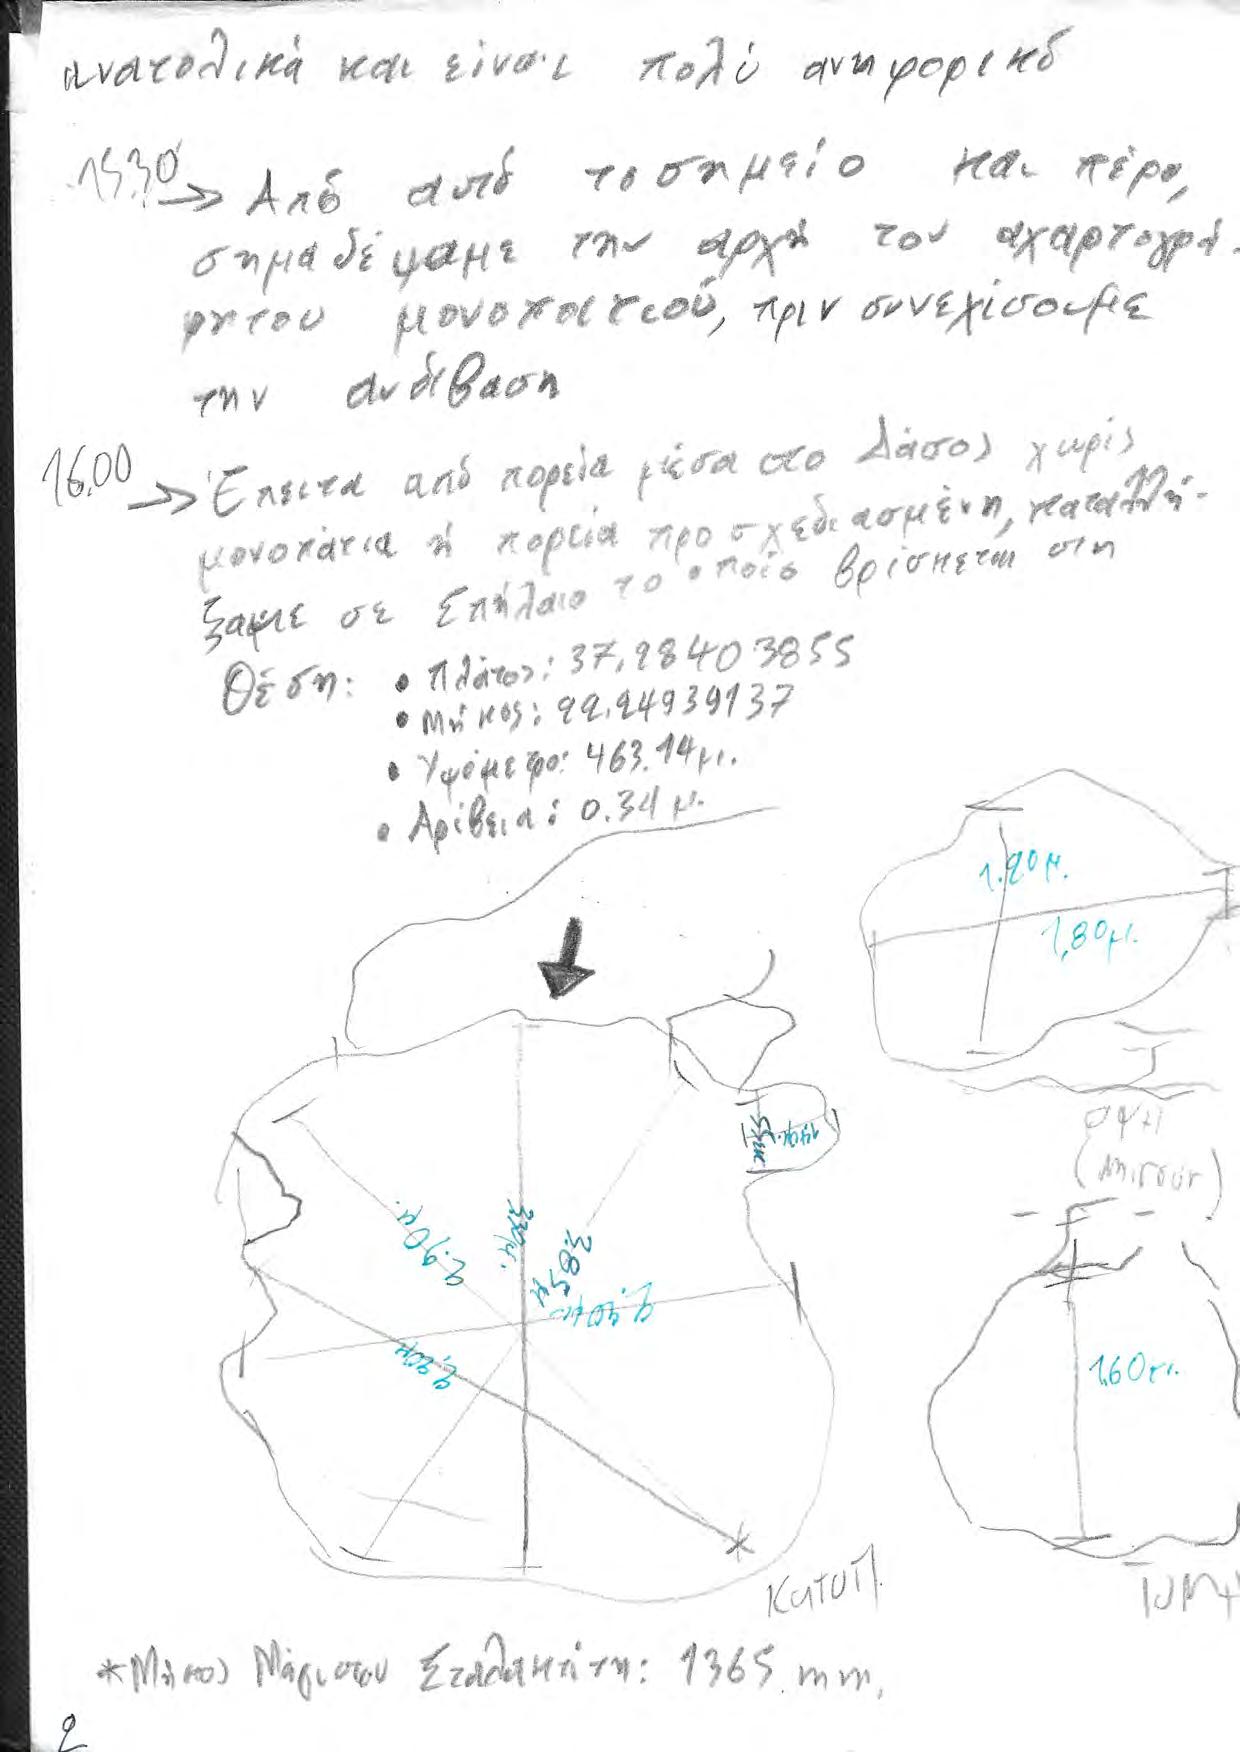 ανατολικά και είναι πολύ ανηφορικό
15.30 → Από αυτό το σημείο και πέρα,
σημαδέψαμε την αρχή του αχαρτογρά-
φητου μονοπατιού, πριν συνεχίσουμε
την ανάβαση
16.00 → Έπειτα από πορεία μέσα στο Δάσος χωρίς
μονοπάτια ή πορεία προσχεδιασμένη, καταλή-
ξαμε σε Σπήλαιο το οποίο βρίσκεται στη
Θέση: • Πλάτος: 37,98403855
• Μήκος: 22.24939137
• Υψόμετρο: 463.14μ.
• Ακρίβεια: 0.34 μ.
1.20μ.
1,80μ.
ΟΨΗ
2,90μ.
3.30μ.
3.85μ
2.40μ
2,20μ
1.60μ.
Κατοψ.
Τομή
*Μήκος Μέγιστου Σταλακτίτη: 1365 mm.
2